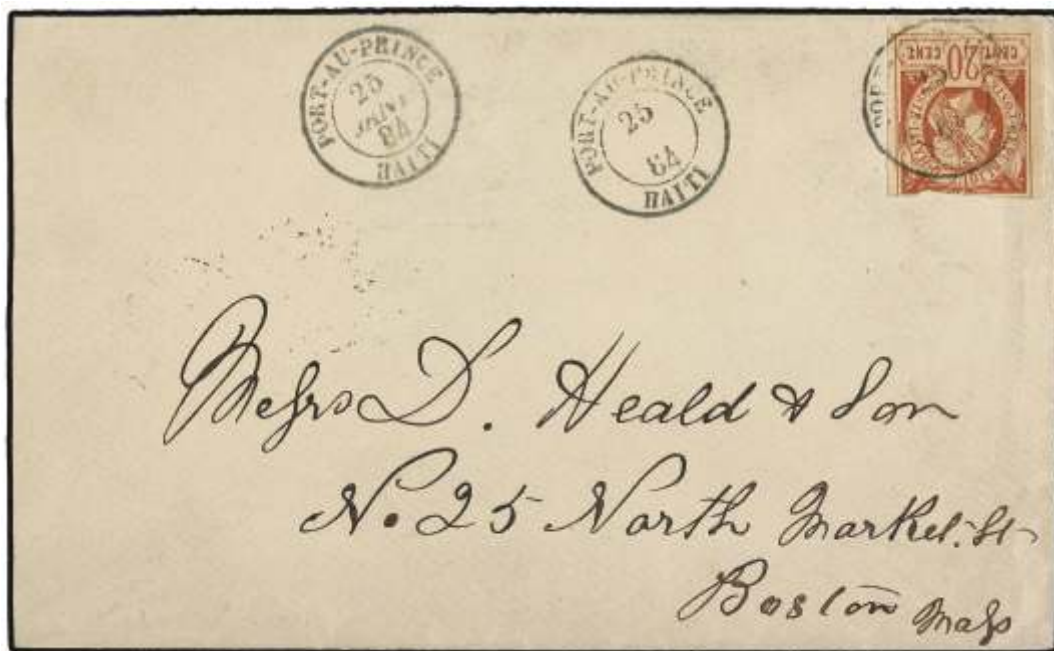 PORT-AU-PRINCE
25
JANV
84
HAITI
PORT-AU-PRINCE
25
84
HAITI
CENT. 20 CENT.
Messrs D. Heald & Son
No. 25 North Market St
Boston Mass